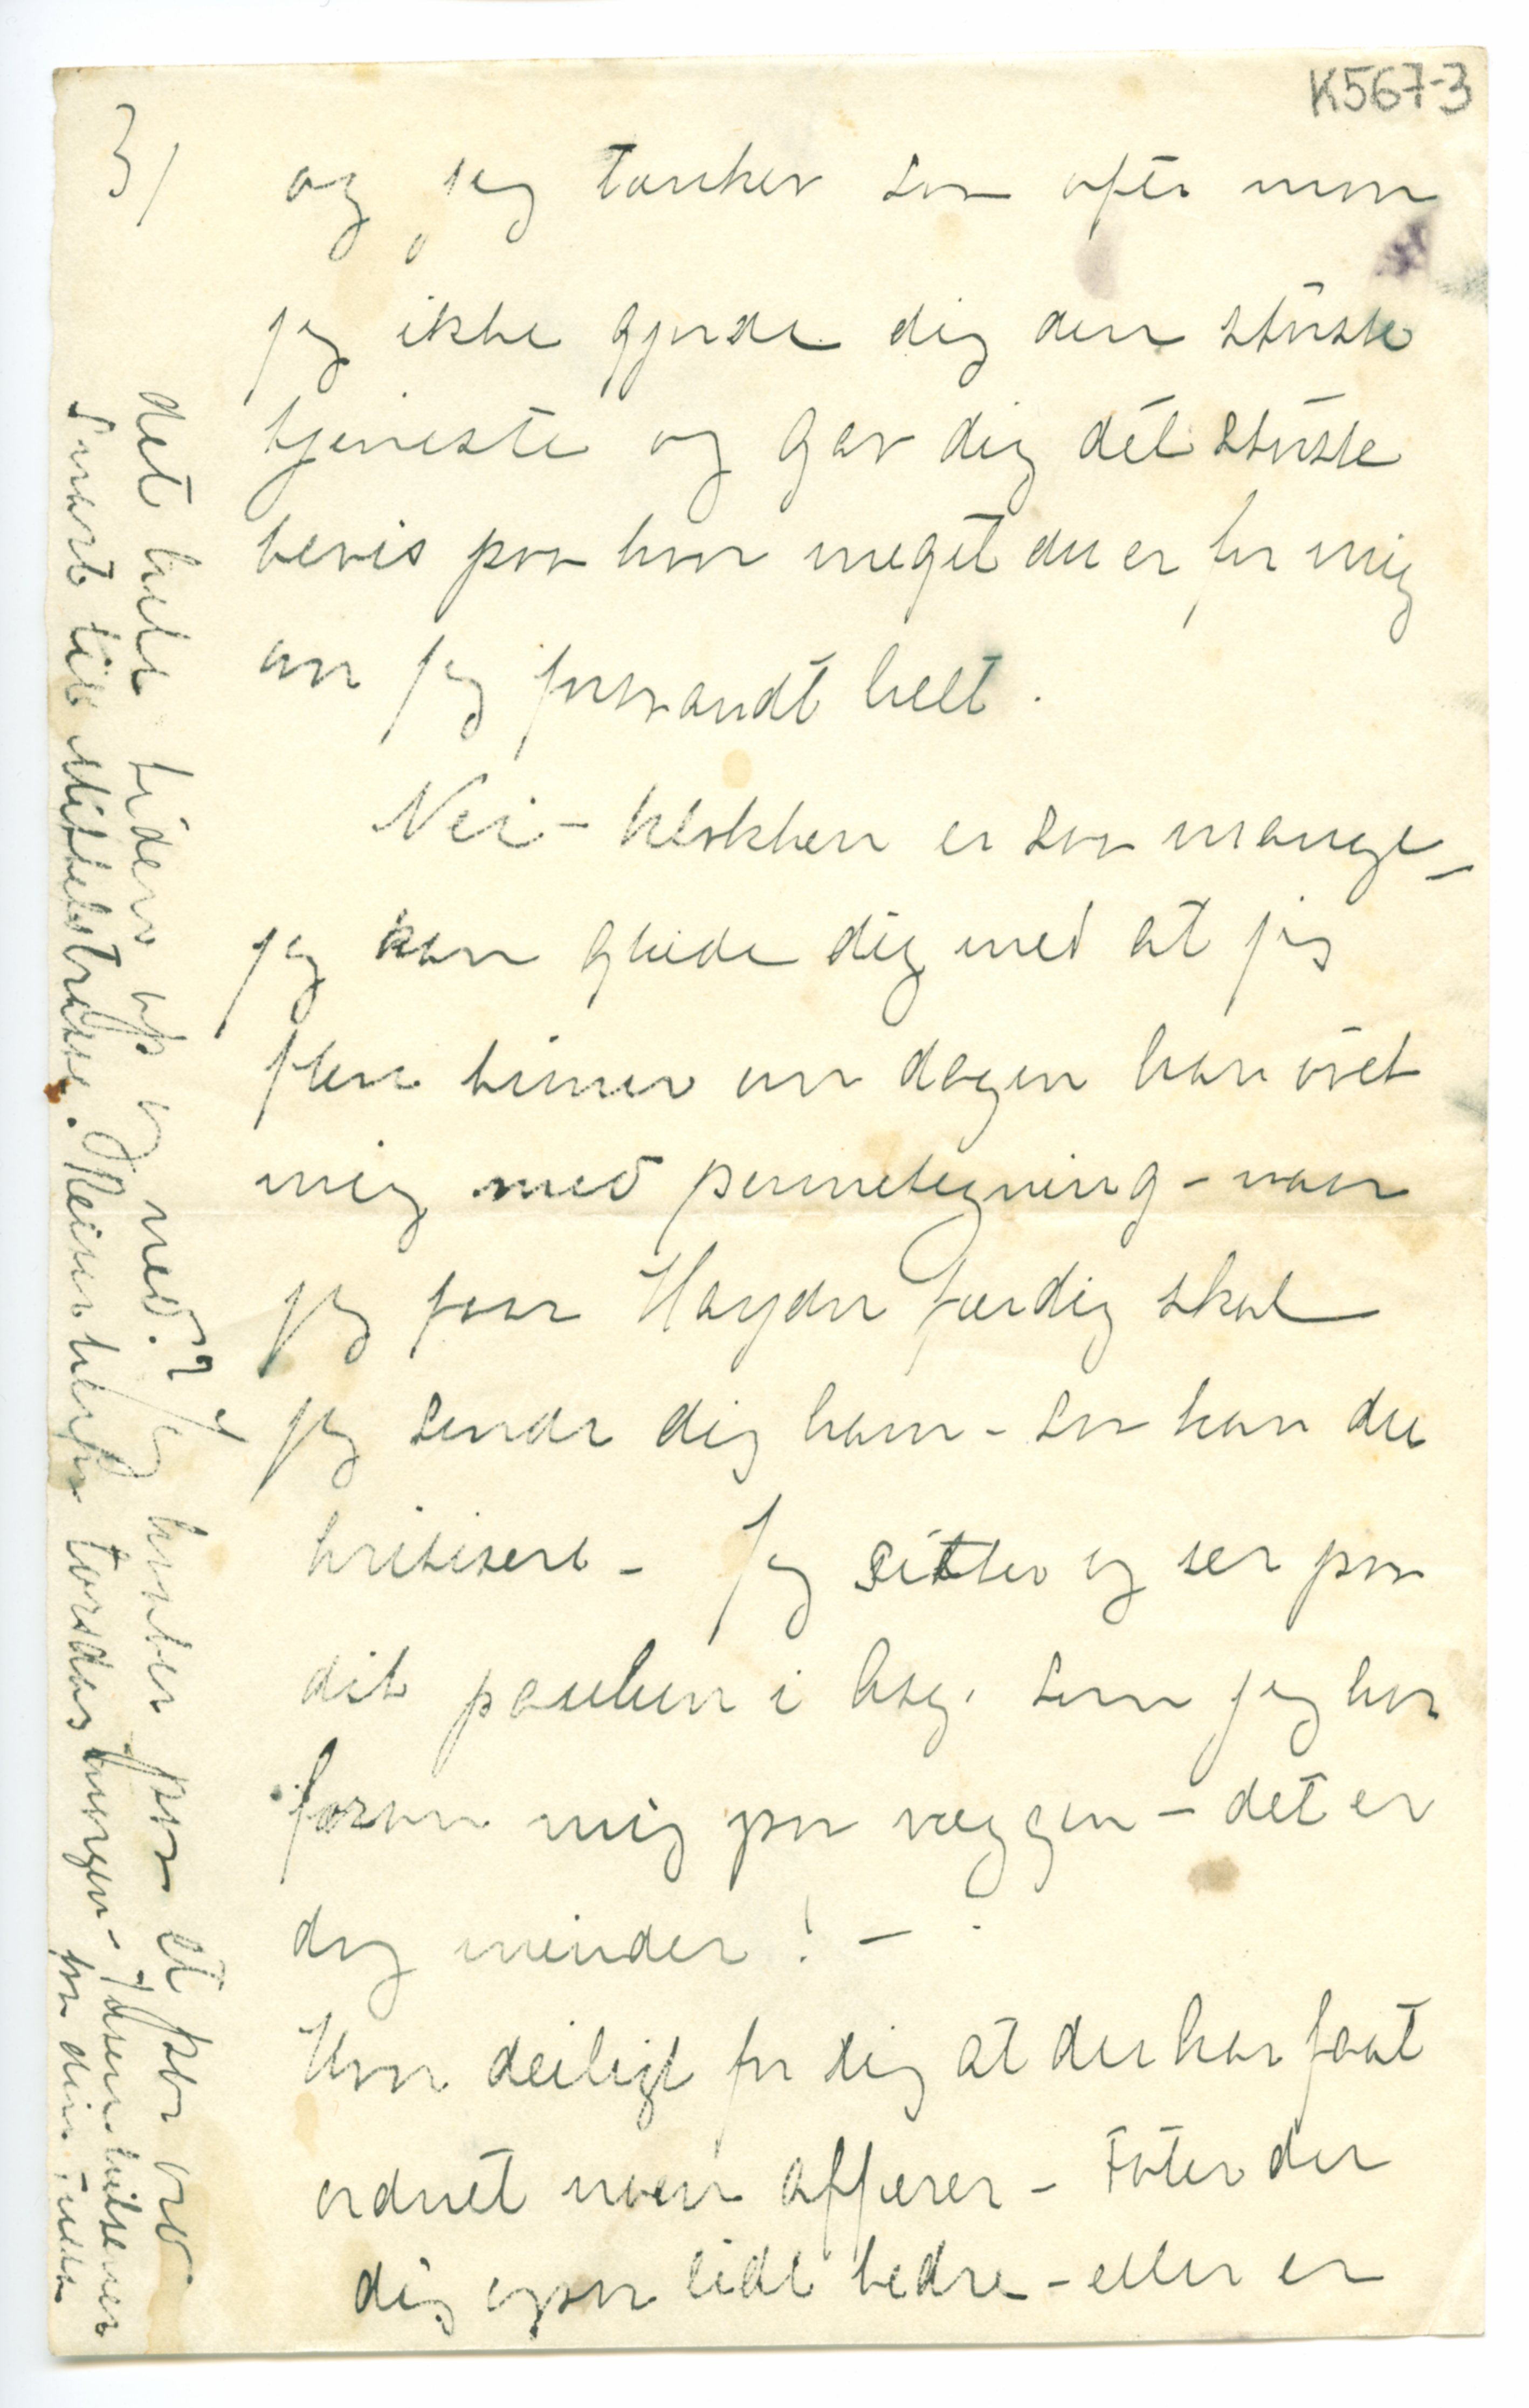 K567-3
3/
og jeg tænker saa ofte mon
jeg ikke gjorde dig den störste
tjeneste og gav dig det störste
bevis paa hvor meget du er for mig
om jeg forsvandt helt.
Nei – klokken er saa mange –
jeg kan glæde dig med at jeg
flere timer om dagen har övet
mig med pennetegning – naar
jeg faar Haydn færdig skal
jeg sende dig ham – saa kan du
kritisere – Jeg sitter og ser paa
dit paullun i Aasg. som jeg har
foran mig paa væggen – det er
dog minder! –
Hvor deiligt for dig at du har faat
ordnet noen affærer – Föler du
dig ogsaa lidt bedre – eller er
det hele tiden op og ned? Jeg venter paa et par ord
snart til Mittelstrasse. Reiser herfra torsdag morgen – Dasen hilsener
fra din Tulla